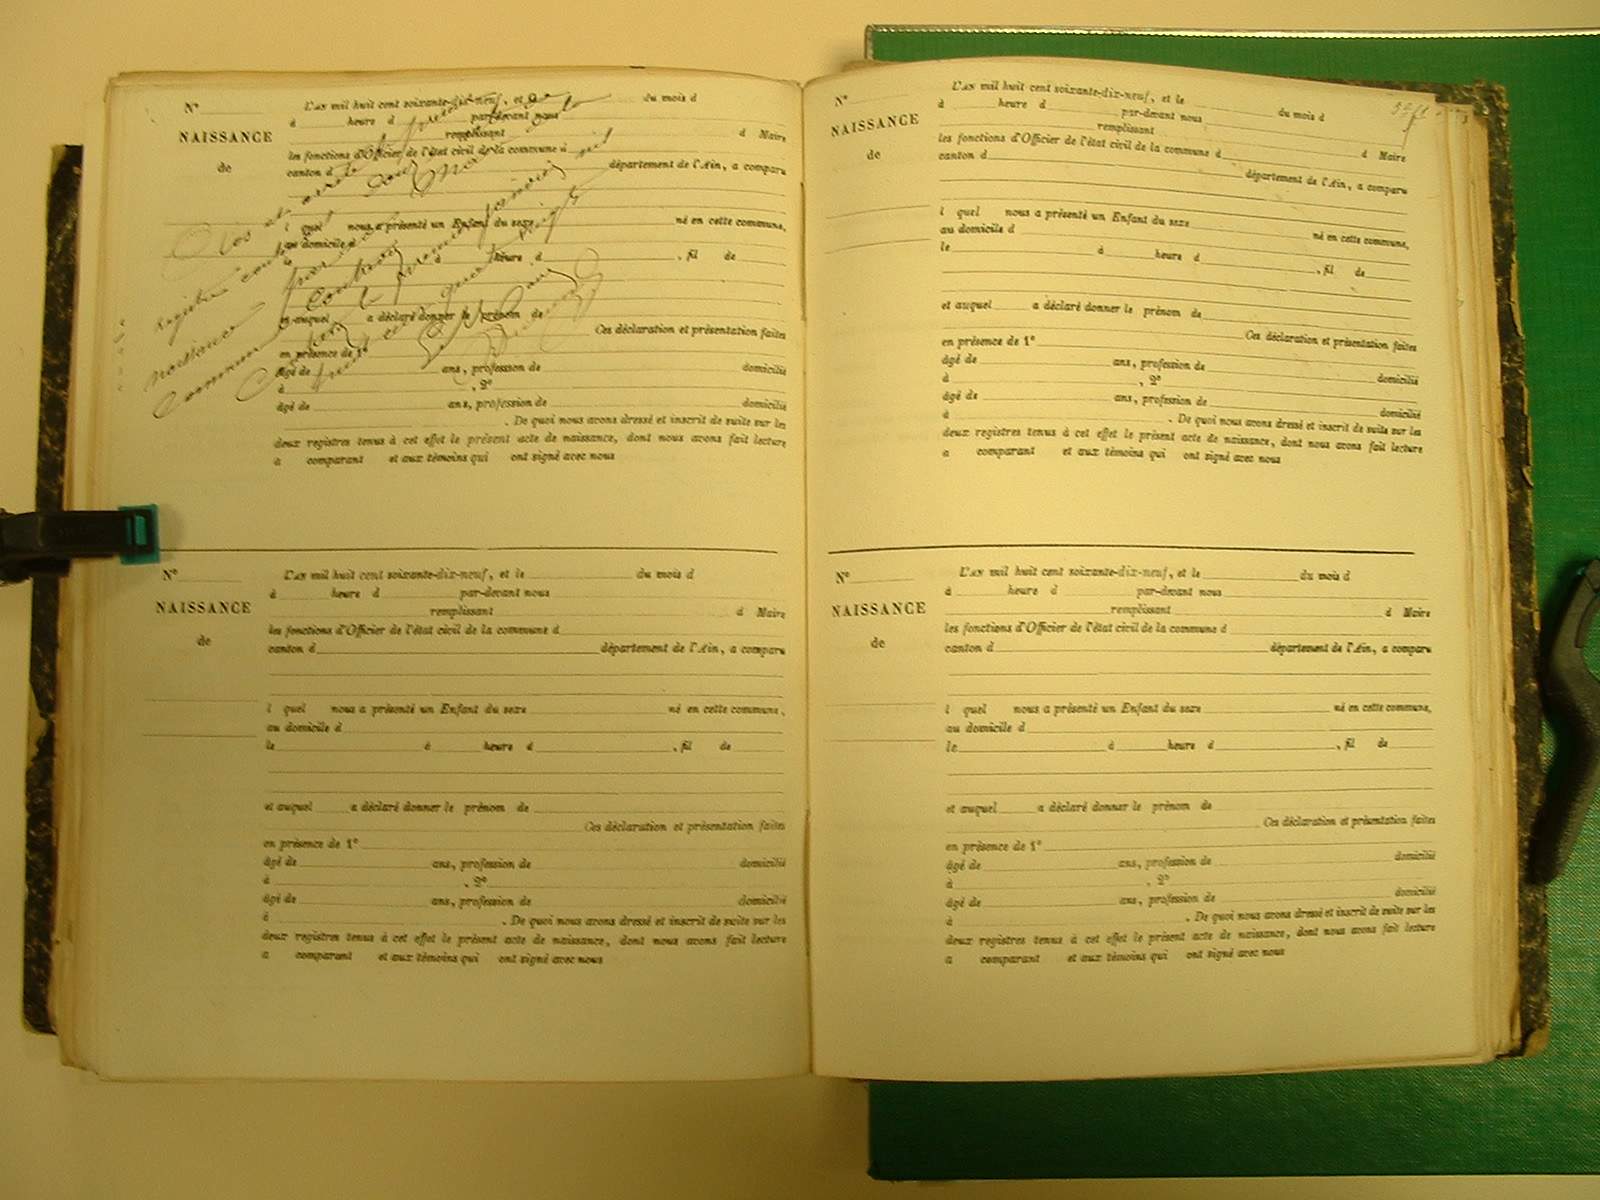 N°
NAISSANCE
de
L'AN mil huit cent soixante-dix-neuf, et le du mois d
à heure d par-devant nous
remplissant d Maire
les fonctions d'Officier de l'état civil de la commune d
canton d département de l'Ain, a comparu
l quel nous a présenté un Enfant du sexe né en cette commune,
au domicile d
à heure d , fil de
et auquel a déclaré donner le prénom de
Ces déclaration et présentation faites
en présence de 1°
âgé de ans, profession de domicilié
à , 2°
âgé de ans, profession de domicilié
à . De quoi nous avons dressé et inscrit de suite sur les
deux registres tenus à cet effet le présent acte de naissance, dont nous avons fait lecture
a comparant et aux témoins qui ont signé avec nous
Clos et arrêté le présent
registre
naissance par nous Maire de la
commune
Le Maire
N°
NAISSANCE
de
L'AN mil huit cent soixante-dix-neuf, et le du mois d
à heure d par-devant nous
remplissant d Maire
les fonctions d'Officier de l'état civil de la commune d
canton d département de l'Ain, a comparu
l quel nous a présenté un Enfant du sexe né en cette commune,
au domicile d
le à heure d , fil de
et auquel a déclaré donner le prénom de
Ces déclaration et présentation faites
en présence de 1°
âgé de ans, profession de domicilié
à , 2°
âgé de ans, profession de domicilié
à . De quoi nous avons dressé et inscrit de suite sur les
deux registres tenus à cet effet le présent acte de naissance, dont nous avons fait lecture
a comparant et aux témoins qui ont signé avec nous
N°
NAISSANCE
de
L'AN mil huit cent soixante-dix-neuf, et le du mois d
à heure d par-devant nous
remplissant d Maire
les fonctions d'Officier de l'état civil de la commune d
canton d département de l'Ain, a comparu
l quel nous a présenté un Enfant du sexe né en cette commune,
au domicile d
le à heure d , fil de
et auquel a déclaré donner le prénom de
Ces déclaration et présentation faites
en présence de 1°
âgé de ans, profession de domicilié
à , 2°
âgé de ans, profession de domicilié
à . De quoi nous avons dressé et inscrit de suite sur les
deux registres tenus à cet effet le présent acte de naissance, dont nous avons fait lecture
a comparant et aux témoins qui ont signé avec nous
N°
NAISSANCE
de
L'AN mil huit cent soixante-dix-neuf, et le du mois d
à heure d par-devant nous
remplissant d Maire
les fonctions d'Officier de l'état civil de la commune d
canton d département de l'Ain, a comparu
l quel nous a présenté un Enfant du sexe né en cette commune,
au domicile d
le à heure d , fil de
et auquel a déclaré donner le prénom de
Ces déclaration et présentation faites
en présence de 1°
âgé de ans, profession de domicilié
à , 2°
âgé de ans, profession de domicilié
à . De quoi nous avons dressé et inscrit de suite sur les
deux registres tenus à cet effet le présent acte de naissance, dont nous avons fait lecture
a comparant et aux témoins qui ont signé avec nous